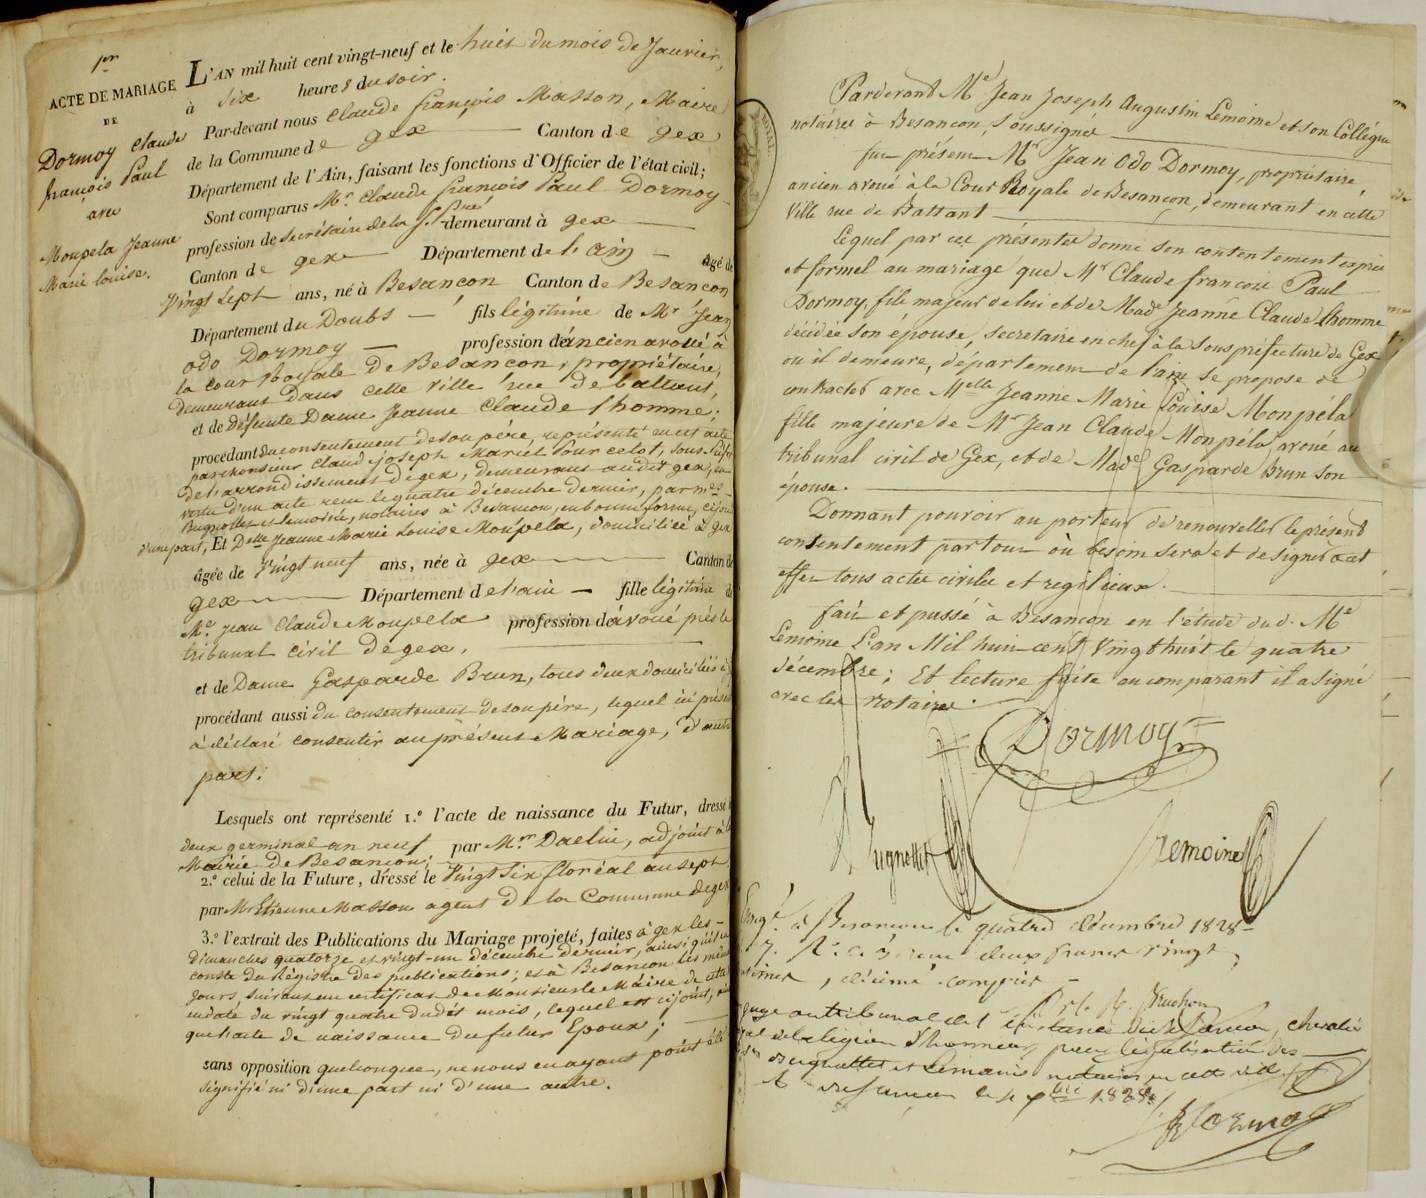 1er
ACTE DE MARIAGE
DE
Dormoy Claude
françois Paul
avec
Monpela Jeanne
Marie Louise.
L'AN mil huit cent vingt-neuf et le huit du mois de Janvier,
à six heures du soir.
Par-devant nous Claude françois Masson, Maire
de la Commune de gex Canton de gex
Département de l'Ain, faisant les fonctions d'Officier de l'état civil;
Sont comparus Mr. Claude françois Paul Dormoy
profession de secrétaire de la demeurant à gex
Canton de gex Département de l'ain âgé de
Vingt sept ans, né à Besançon Canton de Besançon
Département du Doubs fils légitime de Mr Jean
odo Dormoy profession d'ancien avoué à
la cour Royale de Besançon, propriétaire,
demeurant dans cette ville rue de battant,
et de défunte Dame Jeanne Claude lhomme;
procédant du consentement de son père, représenté en cet acte
par monsieur Claude joseph Mariel sous-Préfet
de l'arrondissement de gex, demeurant audit gex, en
vertu d'un acte reçu le quatre décembre dernier, par mes
Bugnottet et Lemoine, notaires à Besançon, en bonne forme, ci joint
d'une part, Et Delle Jeanne Marie Louise Monpela, domiciliée à gex
âgée de Vingt neuf ans, née à gex Canton de
gex Département de l'ain fille légitime de
Mr. jean Claude Monpela profession d'avoué près le
tribunal civil de gex,
et de Dame Gasparde Brun, tous deux domiciliés à
procédant aussi du consentement de son père, lequel ici présent
à déclaré consentir au présent Mariage, d'autre
part.
Lesquels ont représenté 1.° l'acte de naissance du Futur, dressé le
deux germinal an neuf par Mr. Daclin, adjoint à la
Mairie de Besançon;
2.° celui de la Future, dressé le Vingt six floréal an sept
par Mr Etienne Masson agent de la Commune de gex
3.° l'extrait des Publications du Mariage projeté, faites à gex les
dimanches quatorze et vingt-un décembre dernier, ainsi qu'il
conste du Régistre des publications; et à Besançon les mêmes
jours, suivant un certificat de Monsieur le Maire de cette
en date du vingt quatre dudit mois, lequel est ci joint, ainsi
que l'acte de naissance du futur Epoux;
sans opposition quelconque, ne nous en ayant point été
signifié ni d'une part ni d'une autre.
Pardevant Me Jean Joseph Augustin Lemoine et son Collégue
notaires à Besançon, soussignés
fut présent Mr Jean Odo Dormoy, propriétaire,
ancien avoué à la Cour Royale de Besançon, demeurant en cette
Ville rue de Battant
Lequel par ces présentes donne son contentement exprès
et formel au mariage que Mr Claude francois Paul
Dormoy, fils majeur de lui et de Made Jeanne Claude Lhomme
décédée son épouse, secretaire en chef à la Sous préfecture de Gex
où il demeure, département de l'ain se propose de
contracter avec Melle Jeanne Marie Louise Monpéla
fille majeure de Mr Jean Claude Monpéla avoué au
tribunal civil de Gex, et de Made Gasparde Brun son
epouse.
Donnant pouvoir au porteur de renouveller le présent
consentement partout où besoin sera et de signer à cet
effet tous actes civils et regilieux.
fait et passé à Besançon en l'étude dud. Me
Lemoine L'an Mil huit cent Vingt huit le quatre
décembre; Et lecture faite au comparant il a signé
avec les notaires
Dormoy
Bugnottet Lemoine
Enrgt. à Besançon le quatre décembre 1828
deux francs vingt
centimes, décime compris
juge au tribunal de 1ere instance Besançon, chevalier
de la légion d'honneur, pour légalisation des
Bugnottet et Lemoine notaires en cette ville.
Besançon le 4 Xbre 1828